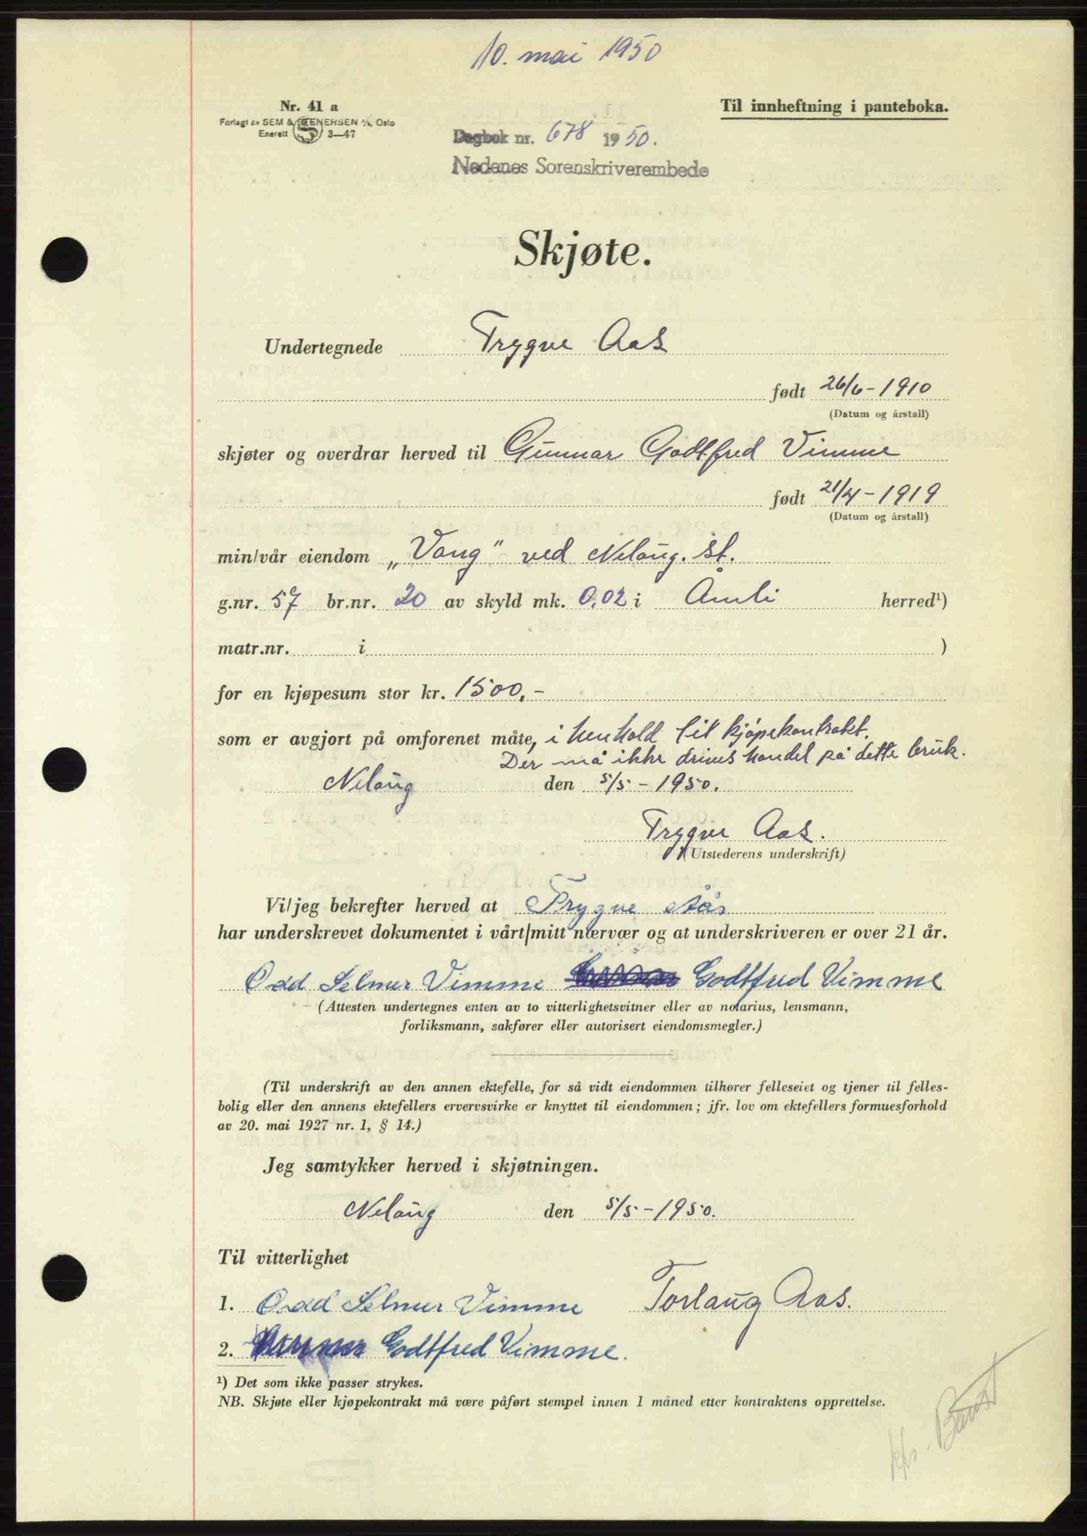 10. mai 1950
Nr. 41 a
Forlagt av SEM & STENERSEN A/S, Oslo
Enerett S 3–47
Til innheftning i panteboka.
Dagbok nr. 678 1950.
Nedenes Sorenskriverembede
Skjøte.
Undertegnede Trygve Aas
født 26/6-1910
(Datum og årstall)
skjøter og overdrar herved til Gunnar Godtfred Vimme
født 21/4-1919
(Datum og årstall)
min/vår eiendom „Vang" ved Nelaug. st.
g.nr. 57 br.nr. 20 av skyld mk. 0,02 i Åmli herred¹)
matr.nr. i )
for en kjøpesum stor kr. 1500,-
som er avgjort på omforenet måte, i henhold til kjøpekontrakt.
Der må ikke drives handel på dette bruk.
Nelaug den 5/5-1950.
Trygve Aas.
(Utstederens underskrift)
Vi/jeg bekrefter herved at Trygve Aas
har underskrevet dokumentet i vårt/mitt nærvær og at underskriveren er over 21 år.
Odd Selmer Vimme Godtfred Vimme
(Attesten undertegnes enten av to vitterlighetsvitner eller av notarius, lensmann,
forliksmann, sakfører eller autorisert eiendomsmegler.)
(Til underskrift av den annen ektefelle, for så vidt eiendommen tilhører felleseiet og tjener til felles-
bolig eller den annens ektefellers ervervsvirke er knyttet til eiendommen; jfr. lov om ektefellers formuesforhold
av 20. mai 1927 nr. 1, § 14.)
Jeg samtykker herved i skjøtningen.
Nelaug den 5/5-1950.
Til vitterlighet
1. Odd Selmer Vimme Torlaug Aas.
2. Godtfred Vimme.
¹) Det som ikke passer strykes.
NB. Skjøte eller kjøpekontrakt må være påført stempel innen 1 måned etter kontraktens opprettelse.